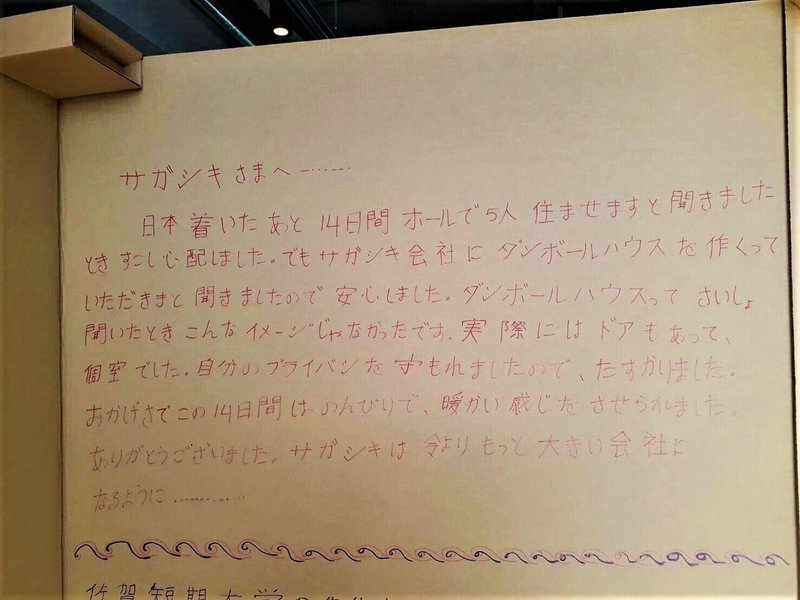 サガシキさまへ………
日本着いたあと 14日間 ホールで5人 住ませますと聞きました
とき すこし心配しました。でも サガシキ会社に ダンボールハウスを 作くって
いただきまと 聞きましたので 安心しました。ダンボールハウスって さいしょ
聞いたとき こんな イメージじゃなかったです。実際には ドアも あって、
個室でした。自分のプライバシを 守もれましたので、たすかりました。
おかげさでこの14日間は のんびりで、暖かい 感じを させられました。
ありがとうございました。サガシキは 今より もっと 大きい会社に
なるように…………
佐賀短期大学の